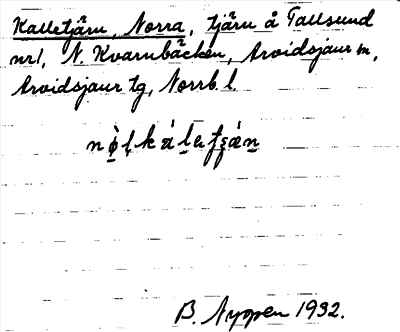 Kalletjärn, Norra, tjärn å Tallsund
nr 1, N. Kvarnbäcken, Arvidsjaur sn,
Arvidsjaur tg, Norrb. l.
B. Nygren 1932.